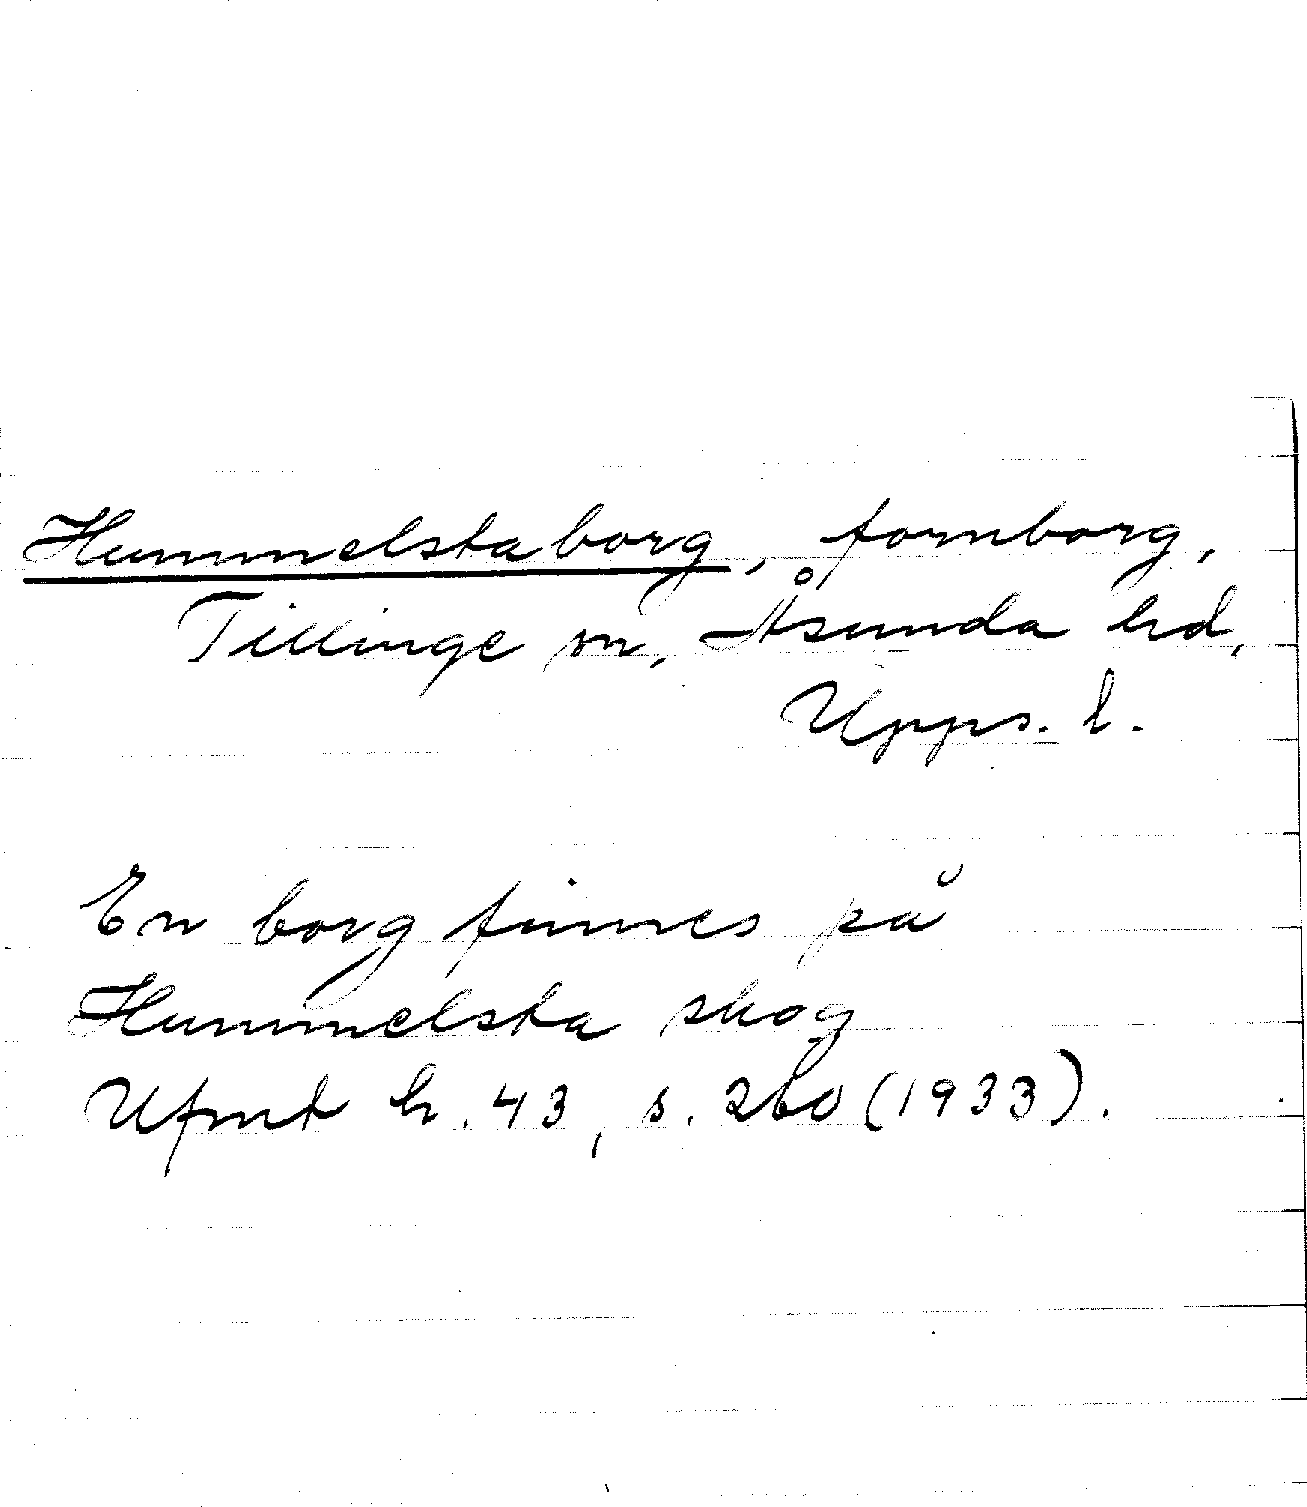 Hummelstaborg, fornborg,
Tillinge sn, Åsunda hd,
Upps. l.
En borg finnes på
Hummelsta skog
Ufmt h. 43, s. 260 (1933).